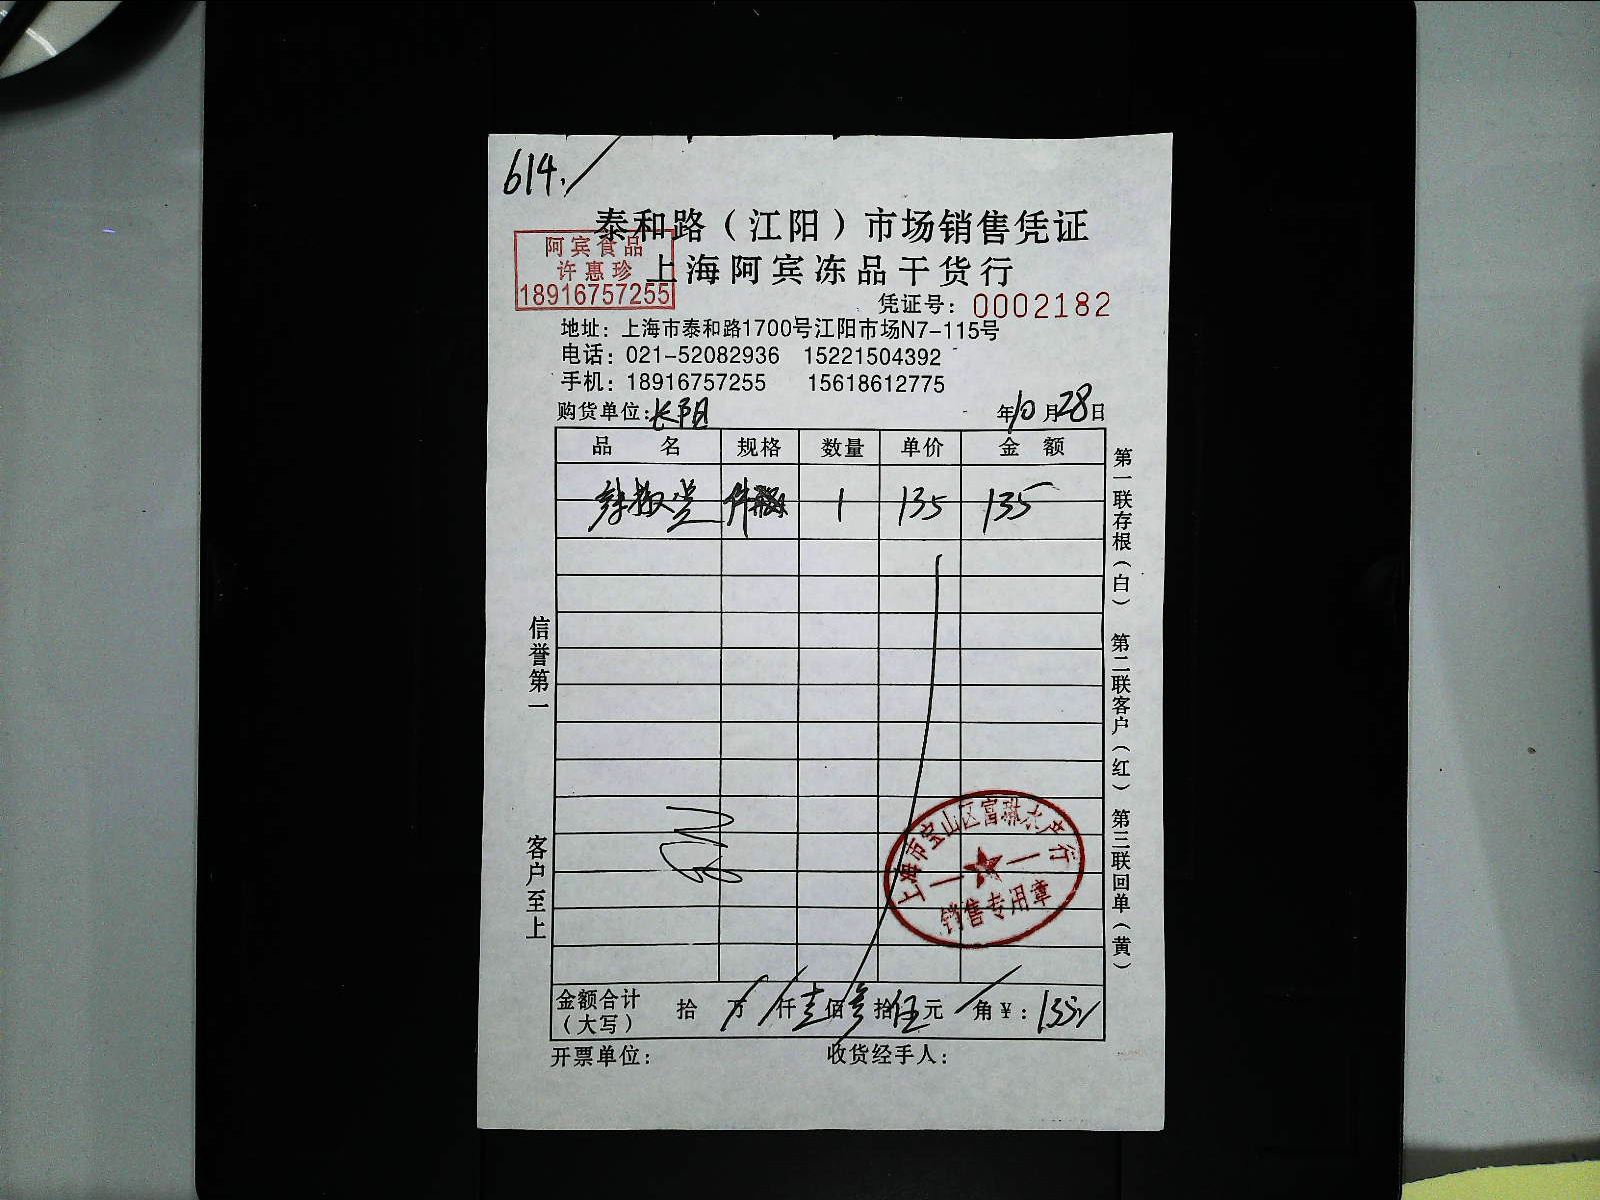 614.
泰和路（江阳）市场销售凭证
阿宾食品
许惠珍
18916757255
上海阿宾冻品干货行
凭证号：0002182
地址：上海市泰和路1700号江阳市场N7-115号
电话：021-52082936 15221504392
手机：18916757255 15618612775
购货单位：长阳 年10月28日
品名 规格 数量 单价 金额
件 1 135 135
信誉第一
客户至上
第一联存根（白）
第二联客户（红）
第三联回单（黄）
上海市宝山区富琳农产行
销售专用章
金额合计（大写） 拾 万 仟壹佰叁拾伍元 角￥：135
开票单位： 收货经手人：